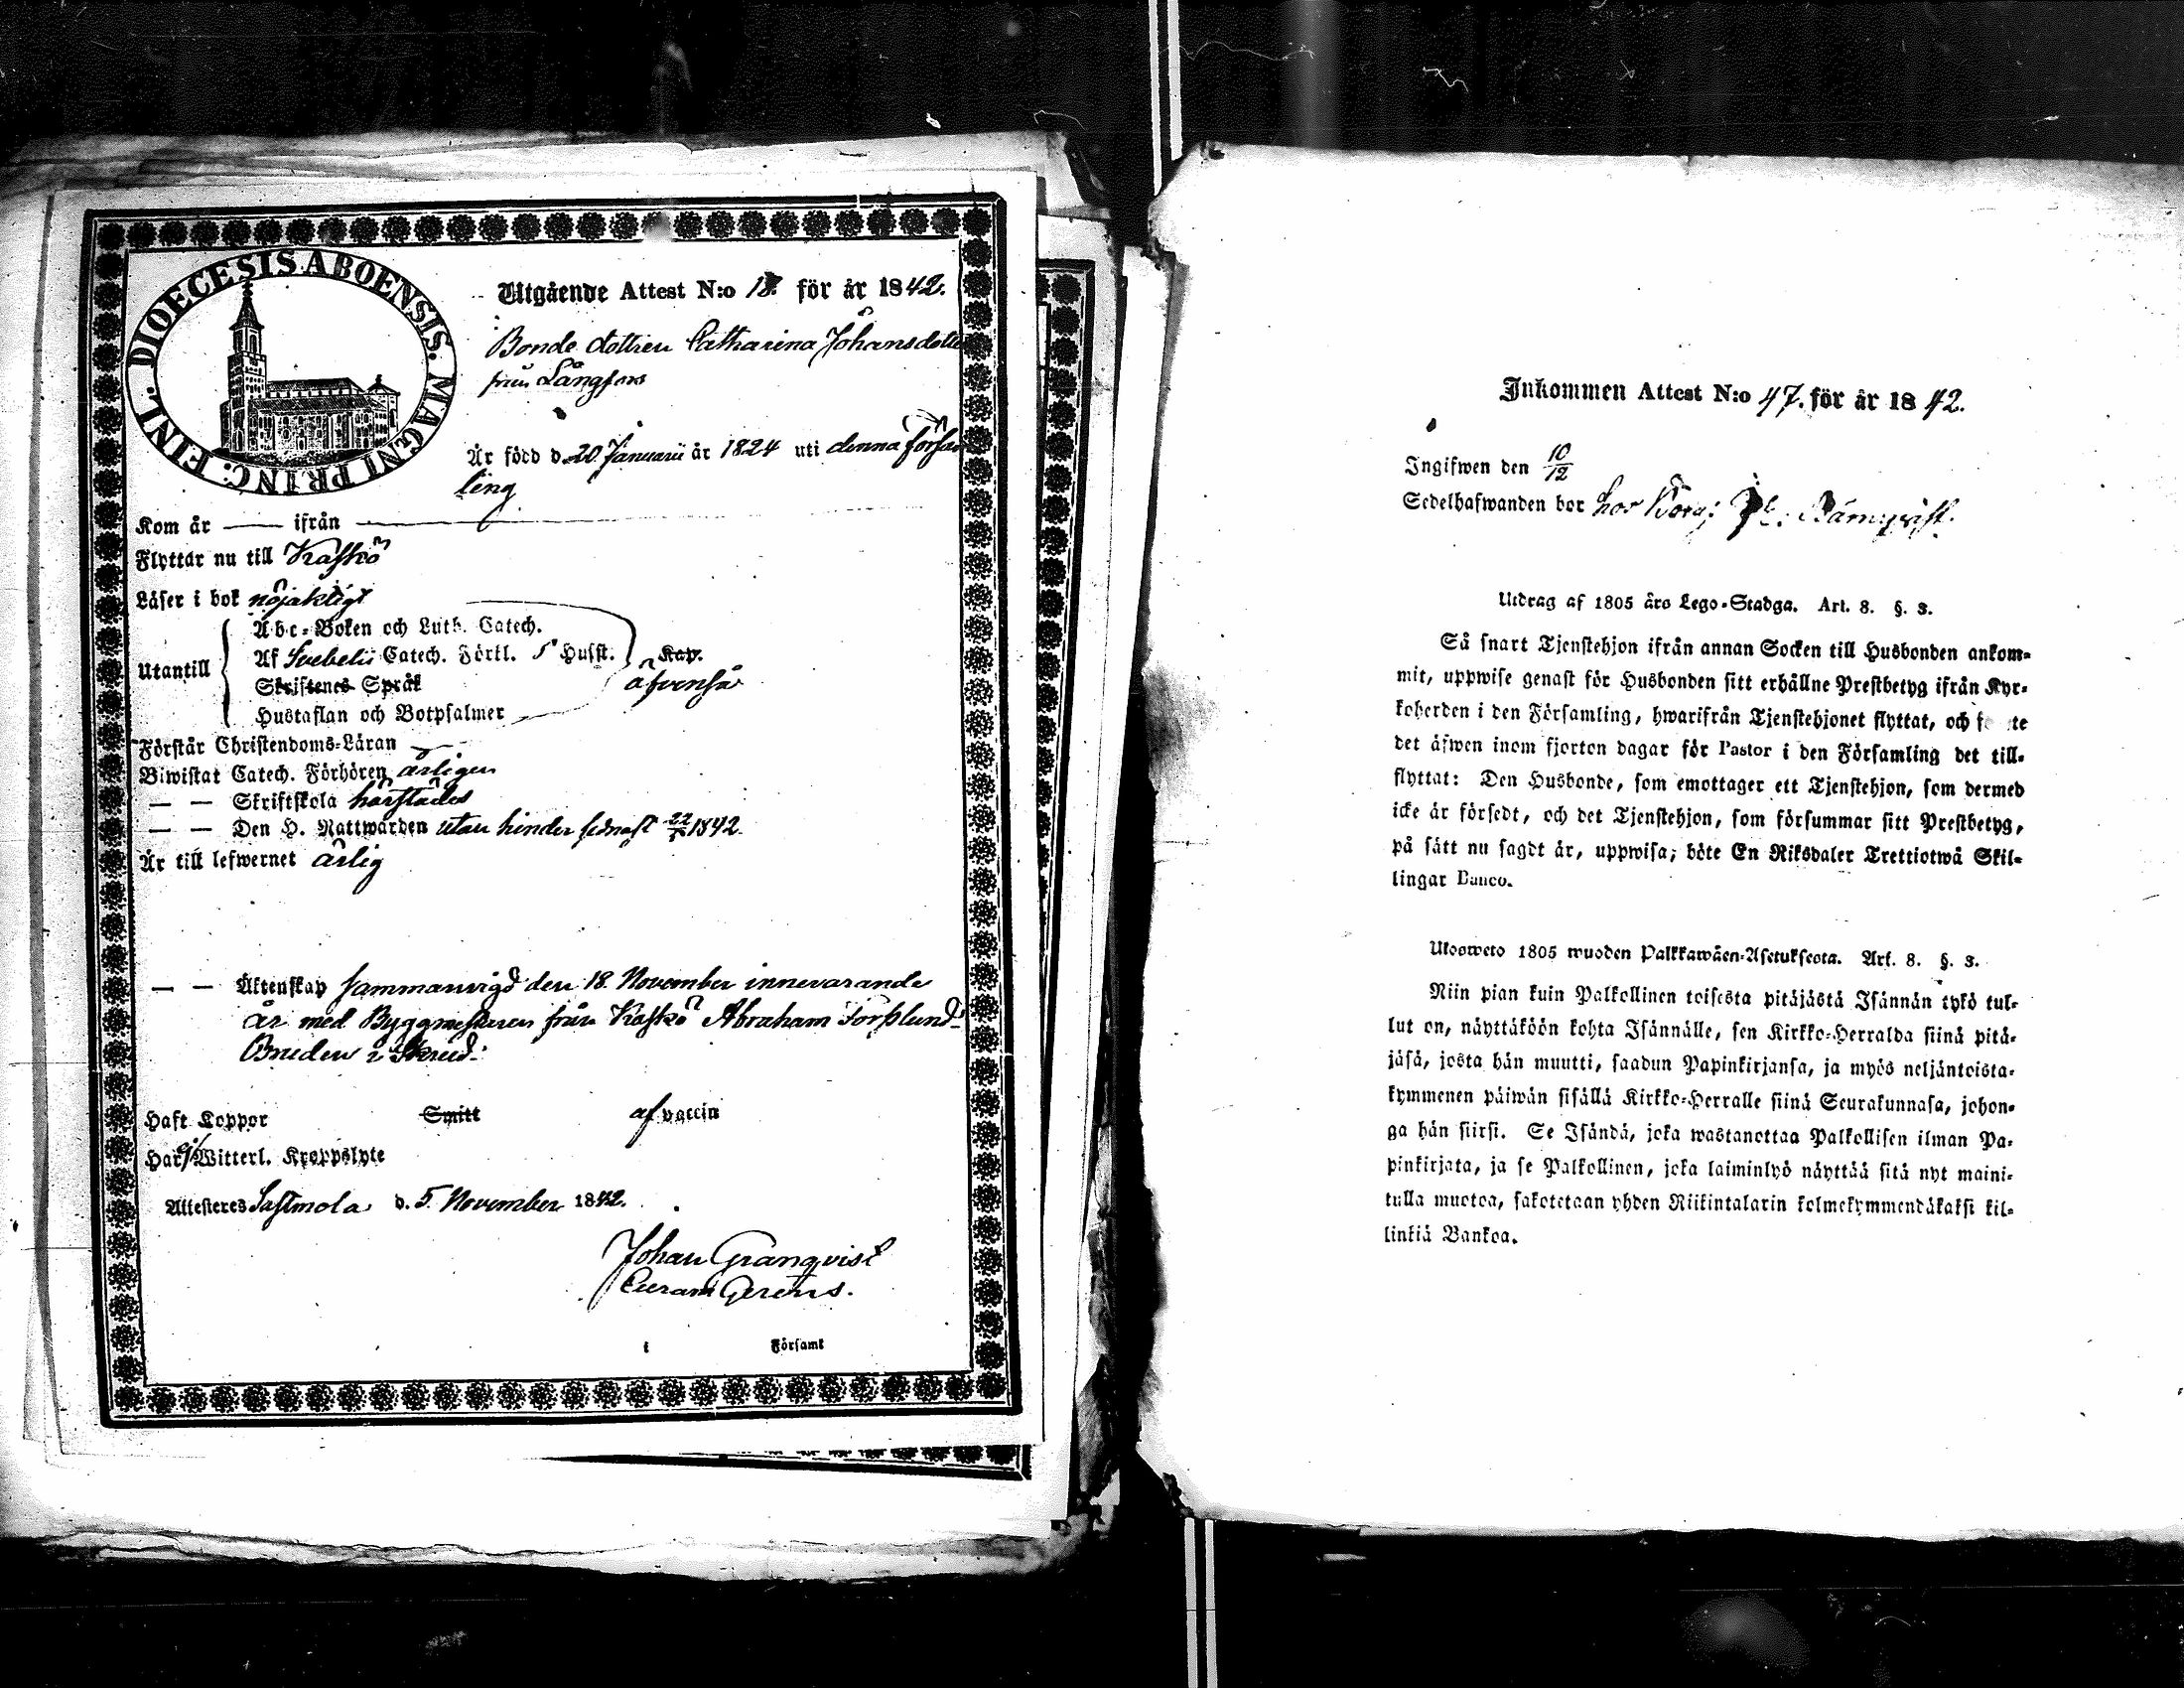 DIOECESIS ABOENSIS. MAGNI PRINC: FINL.
Utgående Attest N:o 18. för år 1842.
Bonde dottren Catharina Johansdotte
från Långfors
Är född d. 20 Januarii år 1824 uti denna försam
ling
Kom år — ifrån —
Flyttar nu till Kaskö
Läser i bok nöjaktigt
Utantill
Abc-Boken och Luth. Catech.
Af Svebelii Catech. Förkl. 5 Husst. Kap.
Skriftenes Språk åfvenså
Hustaflan och Botpsalmer
Förstår Christendoms-Läran —
Biwistat Catech. Förhören årligen
— — Skriftskola härstädes
— — Den H. Nattwarden utan hinder sednast 1842.
Är till lefwernet ärlig
— — Äktenskap sammanvigd den 18 November innevarande
år med Byggmästaren från Kaskö Abraham
Bruden i Skrud.
Haft Koppor Smitt af vaccin
Har ej Witterl. Kroppslyte
Attesteres Sastmola d. 5 November 1842.
Johan Granqvist
Curam Gerens.
i Församl
Inkommen Attest N:o 47. för år 1842.
Ingifwen den 10/12
Sedelhafwanden bor hos
Utdrag af 1805 års Lego-Stadga. Art. 8. §. 3.
Så snart Tjenstehjon ifrån annan Socken till Husbonden ankom-
mit, uppwise genast för Husbonden sitt erhållne Prestbetyg ifrån Kyr-
koherden i den Församling, hwarifrån Tjenstehjonet flyttat, och f te
det äfwen inom fjorton dagar för Pastor i den Församling det till-
flyttat: Den Husbonde, som emottager ett Tjenstehjon, som dermed
icke är försedt, och det Tjenstehjon, som försummar sitt Prestbetyg,
på sätt nu sagdt är, uppwisa; böte En Riksdaler Trettiotwå Skil-
lingar Banco.
Ulosweto 1805 wuoden Palkkawäen-Asetuksesta. Art. 8. §. 3.
Niin pian kuin Palkollinen toisesta pitäjästä Isännän tykö tul-
lut on, näyttäköön kohta Isännälle, sen Kirkko-Herralda siinä pitä-
jäsä, josta hän muutti, saadun Papinkirjansa, ja myös neljäntoista-
kymmenen päiwän sisällä Kirkko-Herralle siinä Seurakunnasa, johon-
ga hän siirsi. Se Isändä, joka wastanottaa Palkollisen ilman Pa-
pinkirjata, ja se Palkollinen, joka laiminlyö näyttää sitä nyt maini-
tulla muotoa, sakotetaan yhden Riikintalarin kolmekymmendäkaksi kil-
linkiä Bankoa.